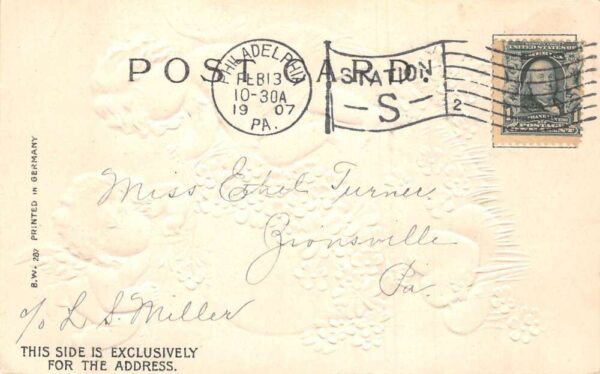 POST CARD.
PHILADELPHIA
FEB 13
10-30A
1907
PA.
STATION
-S-
2
UNITED STATES OF AMERICA
POSTAGE
ONE CENT
B.W. 287 PRINTED IN GERMANY
Miss Ethel Turner
Zionsville
Pa.
c/o L S Miller
THIS SIDE IS EXCLUSIVELY
FOR THE ADDRESS.